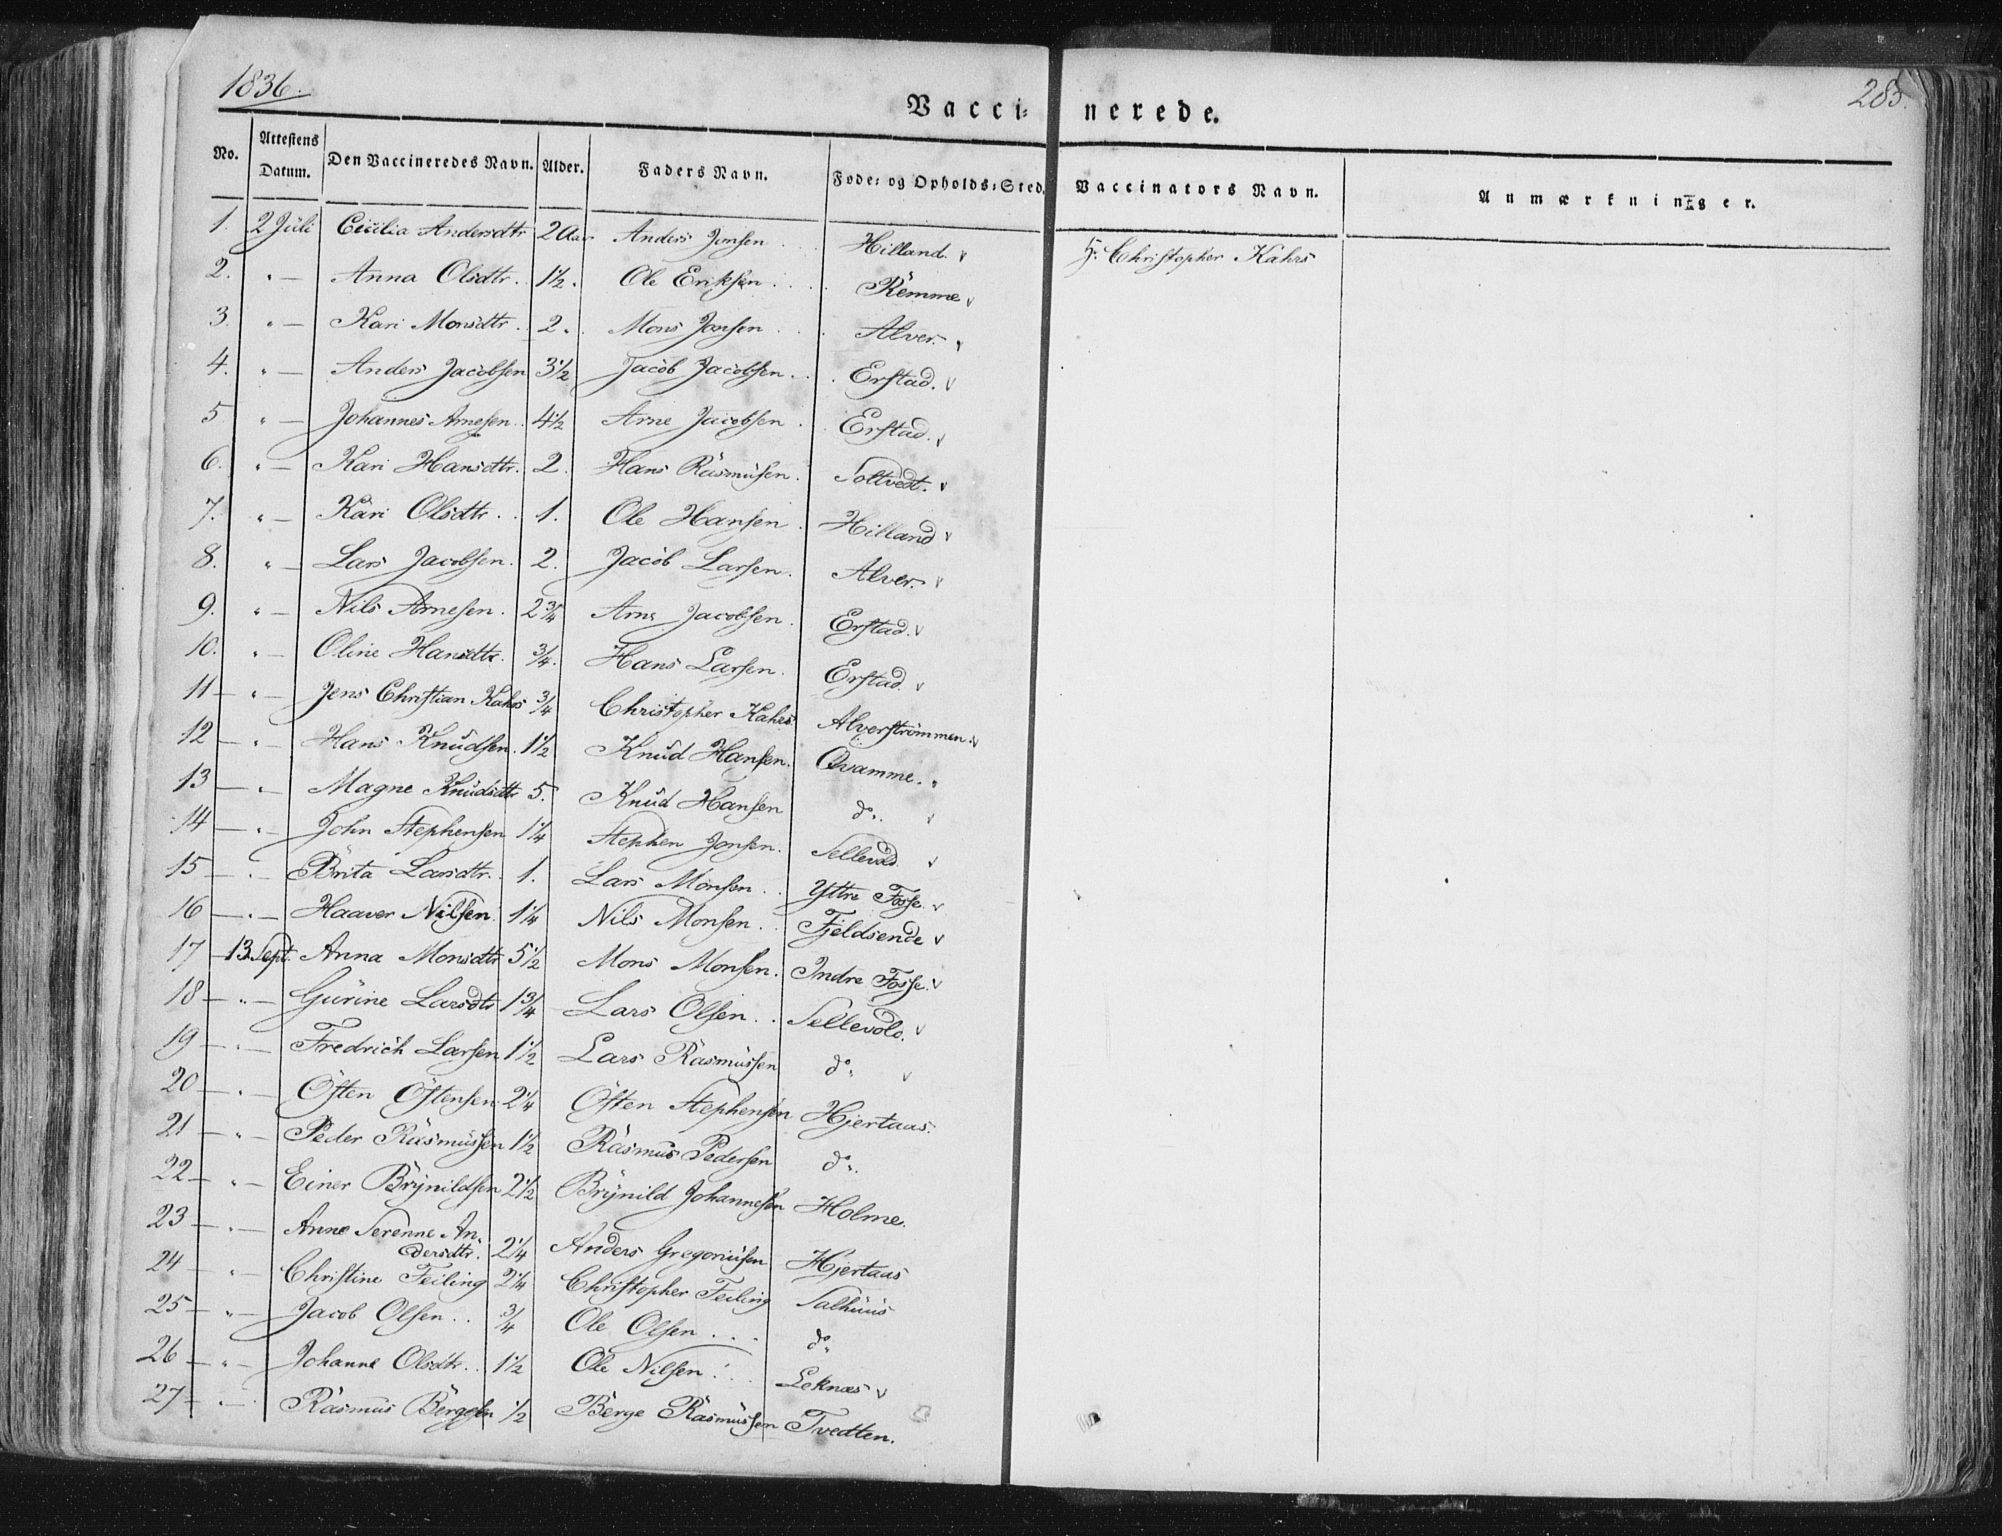 1836.
283.
Vaccinerede.
No. Attestens Datum. Den Vaccineredes Navn. Alder. Faders Navn. Føde- og Opholds-Sted. Vaccinators Navn. Anmærkninger.
1. 2 Juli Cicilia Andersdtr 2 Aar Anders Jonsen Hilland. Christopher Kahrs
2. " — Anna Olsdtr. 1½. Ole Eriksen Remme
3. " — Kari Monsdtr. 2. Mons Jonsen Alver.
4. " — Anders Jacobsen 3½ Jacob Jacobsen Erstad.
5 " — Johannes Arnesen 4½ Arne Jacobsen Erstad.
6. " — Kari Hansdtr. 2. Hans Rasmusen Soltvedt.
7. " — Kari Olsdtr. 1. Ole Hansen Hilland
8. " — Lars Jacobsen. 2. Jacob Larsen. Alver.
9. " — Nils Arnesen. 2¾ Arne Jacobsen. Erstad.
10. " — Oline Hansdtr. ¾. Hans Larsen. Erstad.
11 — " — Jens Christian Kahrs ¾ Christopher Kahrs Alverströmmen.
12 — " Hans Knudsen. 1½ Knud Hansen. Qvamme.
13 — " Magne Knudsdtr 5. Knud Hansen do.
14 — " John Stephensen 1¼ Stephen Jonsen. Sellevold.
15 — " Brita Larsdtr. 1. Lars Monsen Yttre Fosse.
16 — " — Haaver Nilsen. 1¼ Nils Monsen. Fjeldsende
17 — 13. Sept. Anna Monsdtr 5½ Mons Monsen. Indre Fosse.
18 — " — Gurine Larsdtr 1¾ Lars Olsen. Sellevold.
19 — " — Fredrich Larsen 1½ Lars Rasmussen do.
20 — " — Østen Østensen 2¼ Østen Stephensen Hjertaas.
21 — " — Peder Rasmussen 1½ Rasmus Pedersen do.
22 — " — Einer Brynildsen 2½ Brynild Johannesen Holme.
23 — " — Anne Serenne Andersdtr. 2¼ Anders Gregoriusen Hjertaas
24 — " — Christine Feiling 2¼ Christopher Feiling Salhuus
25 — " — Jacob Olsen ¾ Ole Olsen do.
26 — " — Johanne Olsdtr. 1½ Ole Nilsen Leknæs
27 — " — Rasmus Bergesen ½ Berge Rasmussen Tvedten.